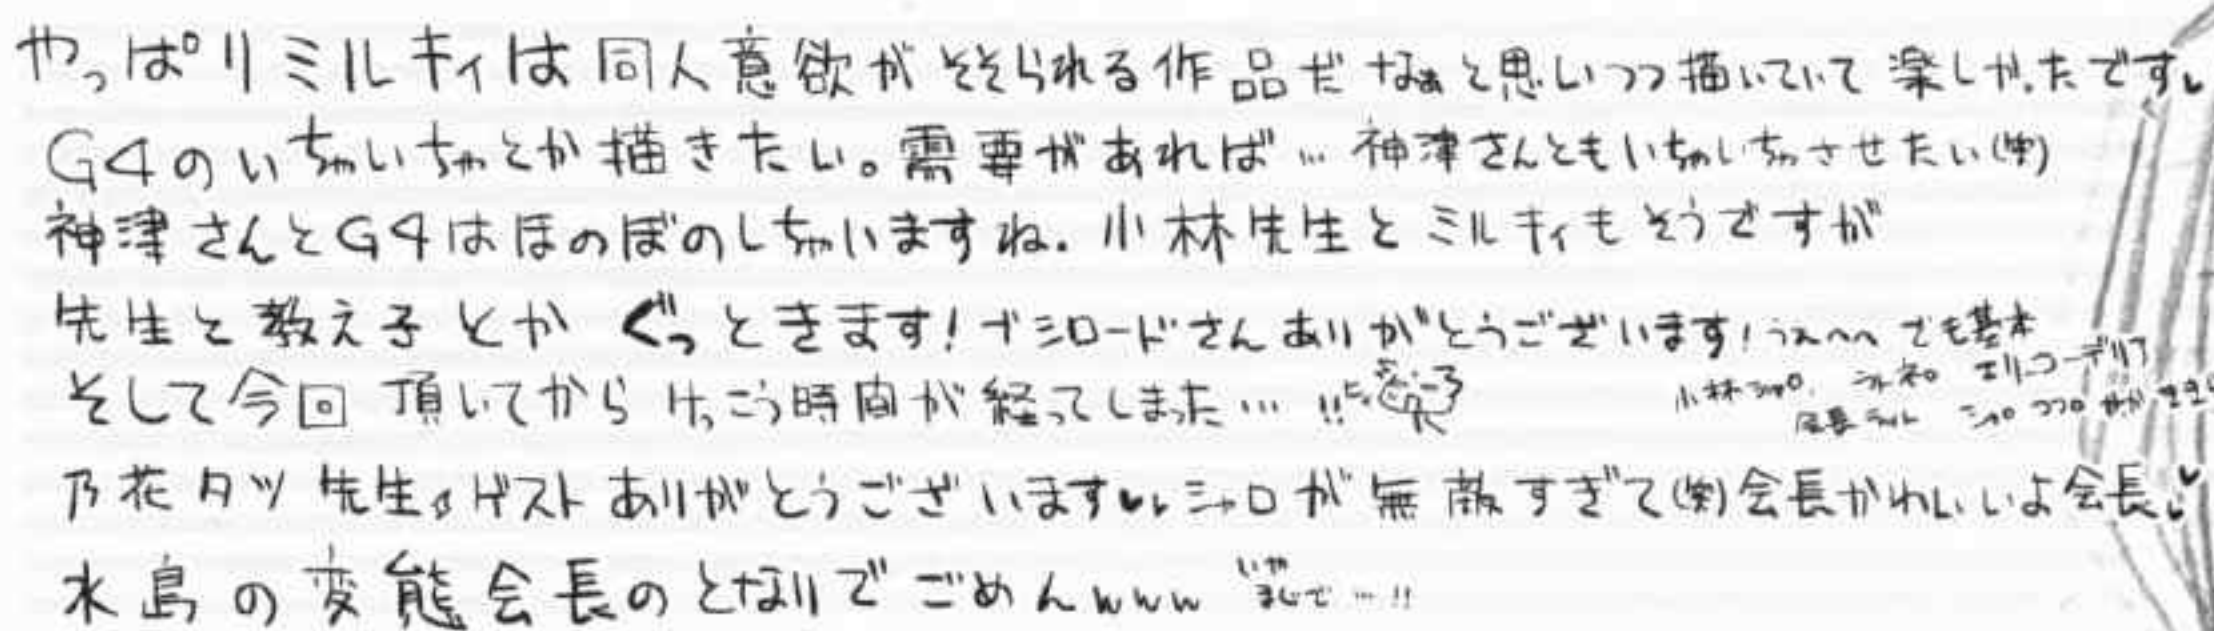 やっぱりミルキィは同人意欲がそそられる作品だなぁと思いつつ描いていて楽しかったです
G4のいちゃいちゃとか描きたい。需要があれば… 神津さんともいちゃいちゃさせたい(笑)
神津さんとG4はほのぼのしちゃいますね。小林先生とミルキィもそうですが
先生と教え子とか ぐっときます！ブシロードさんありがとうございます！うえへへ でも基本
小林シャロ、 エリーコーデリア
会長
そして今回 頂いてからけっこう時間が経ってしまった…!!
乃花タツ先生♪ゲストありがとうございます♥♥シャロが無敵すぎて(笑)会長かわいいよ会長♥
水島の変態会長のとなりでごめんwww いやまじで…!!